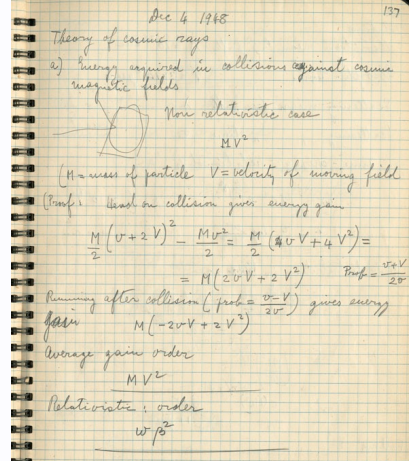 137
Dec 4 1948
Theory of cosmic rays
a) Energy acquired in collisions against cosmic
magnetic fields
Non relativistic case
MV²
(M = mass of particle V = velocity of moving field
(Proof: Head on collision gives energy gain
M/2 (v+2V)² − Mv²/2 = M/2 (4vV + 4V²) =
= M(2vV + 2V²) Prob = (v+V)/2v
Running after collision (prob = (v−V)/2v) gives energy
gain M(−2vV + 2V²)
Average gain order
MV²
Relativistic: order
wβ²